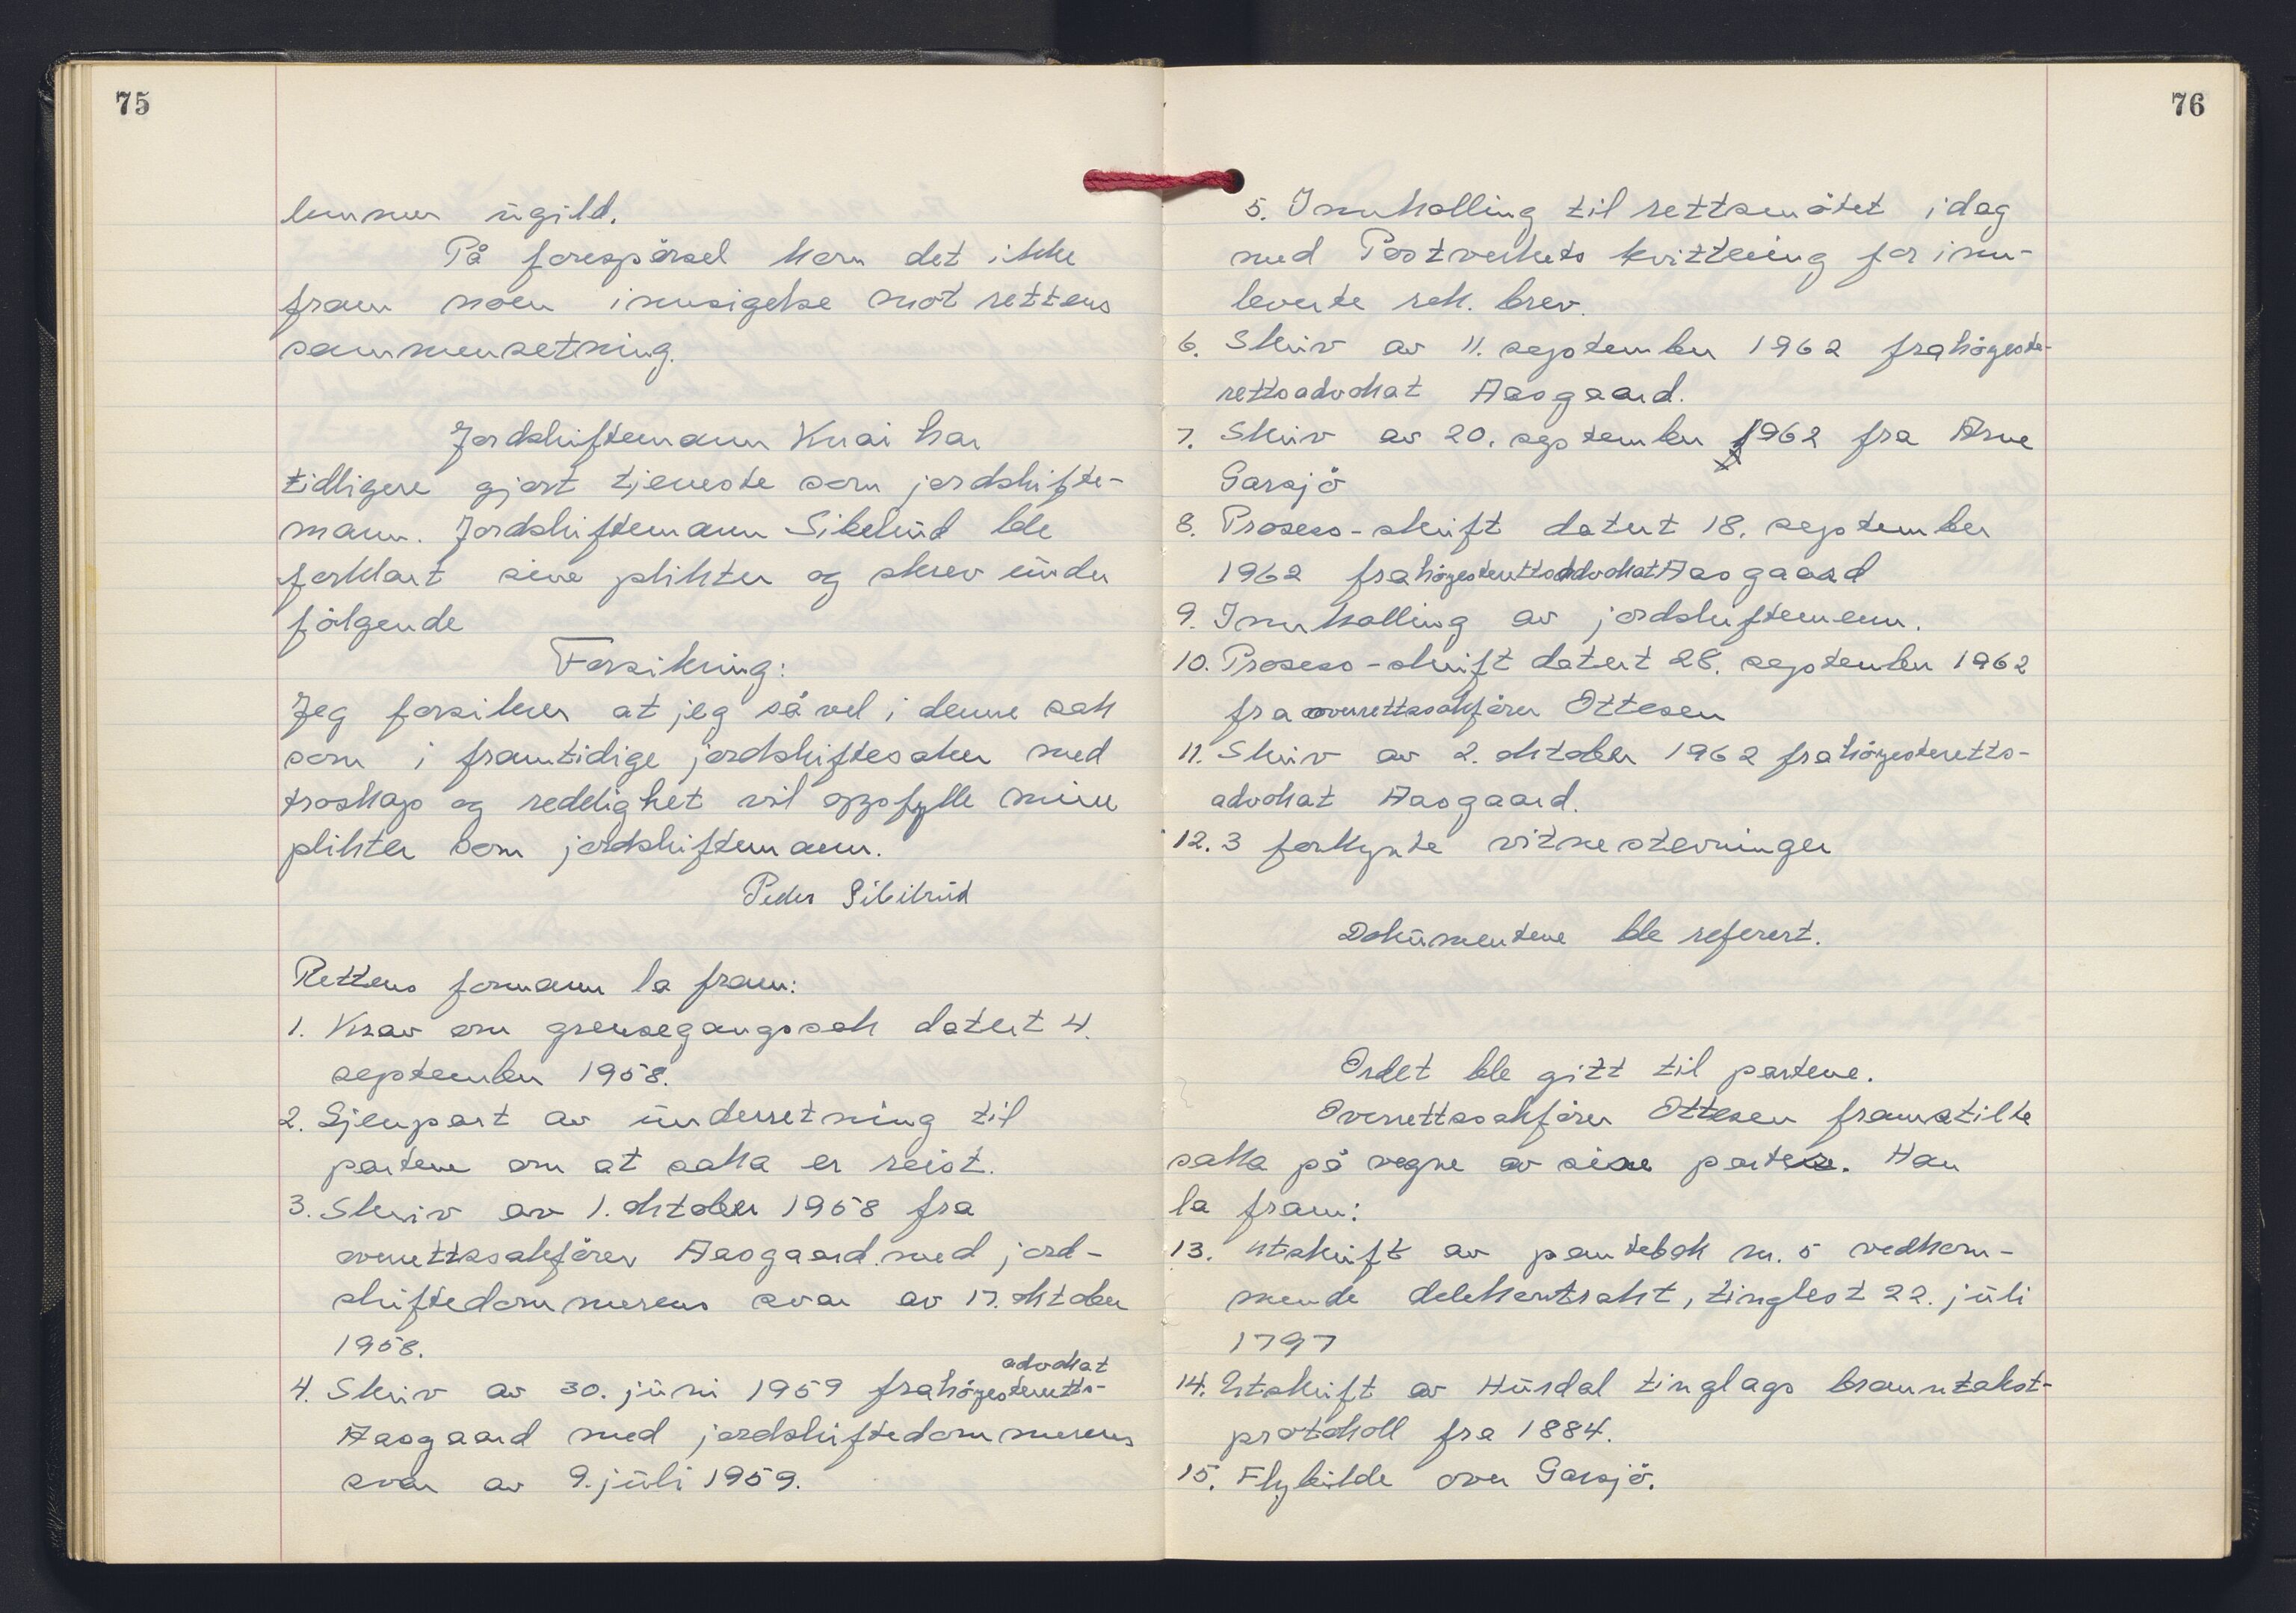 75
lemmer ugild.
På forespørsel kom det ikke
fram noen innsigelse mot rettens
sammensetning.
Jordskiftemann Knai har
tidligere gjort tjeneste som jordskifte-
mann. Jordskiftemann Sibelrud ble
forklart sine plikter og skrev under
følgende
Forsikring:
Jeg forsikrer at jeg så vel i denne sak
som i framtidige jordskiftesaker med
troskap og reddighet vil oppfylle mine
plikter som jordskiftemann.
Peder Sibilrud
Rettens formann la fram:
1. Krav om grensegangssak datert 4.
september 1958.
2. Gjenpart av underretning til
partene om at saka er reist.
3. Skriv av 1. oktober 1958 fra
overrettssakfører Aasgaard med jord-
skiftedommerens svar av 17. oktober
1958.
advokat
4. Skriv av 30. juni 1959 fra høgesteretts-
Aasgaard med jordskiftedommerens
svar av 9. juli 1959.
76
5. Innkalling til rettsmøtet idag
med Postverkets kvittering for inn-
leverte rek. brev.
6. Skriv av 11. september 1962 fra høgeste-
rettsadvokat Aasgaard.
7. Skriv av 20. september 1962 fra Arne
Garsjø
8. Prosess-skrift datert 18. september
1962 fra høgesterettsadvokat Aasgaard
9. Innkalling av jordskiftemenn.
10. Prosess-skrift datert 28. september 1962
fra overrettssakfører Ottesen
11. Skriv av 2. oktober 1962 fra høgesteretts-
advokat Aasgaard.
12. 3 forkynte vitnestevninger
Dokumentene ble referert.
Ordet ble gitt til partene.
Overrettssakfører Ottesen framstilte
saka på vegne av sine parter. Han
la fram:
13. Utskrift av pantebok nr. 5 vedkom-
mende delekontrakt, tinglest 22. juli
1797
14. Utskrift av Hurdal tinglags branntakst-
protokoll fra 1884.
15. Flybilde over Garsjø.